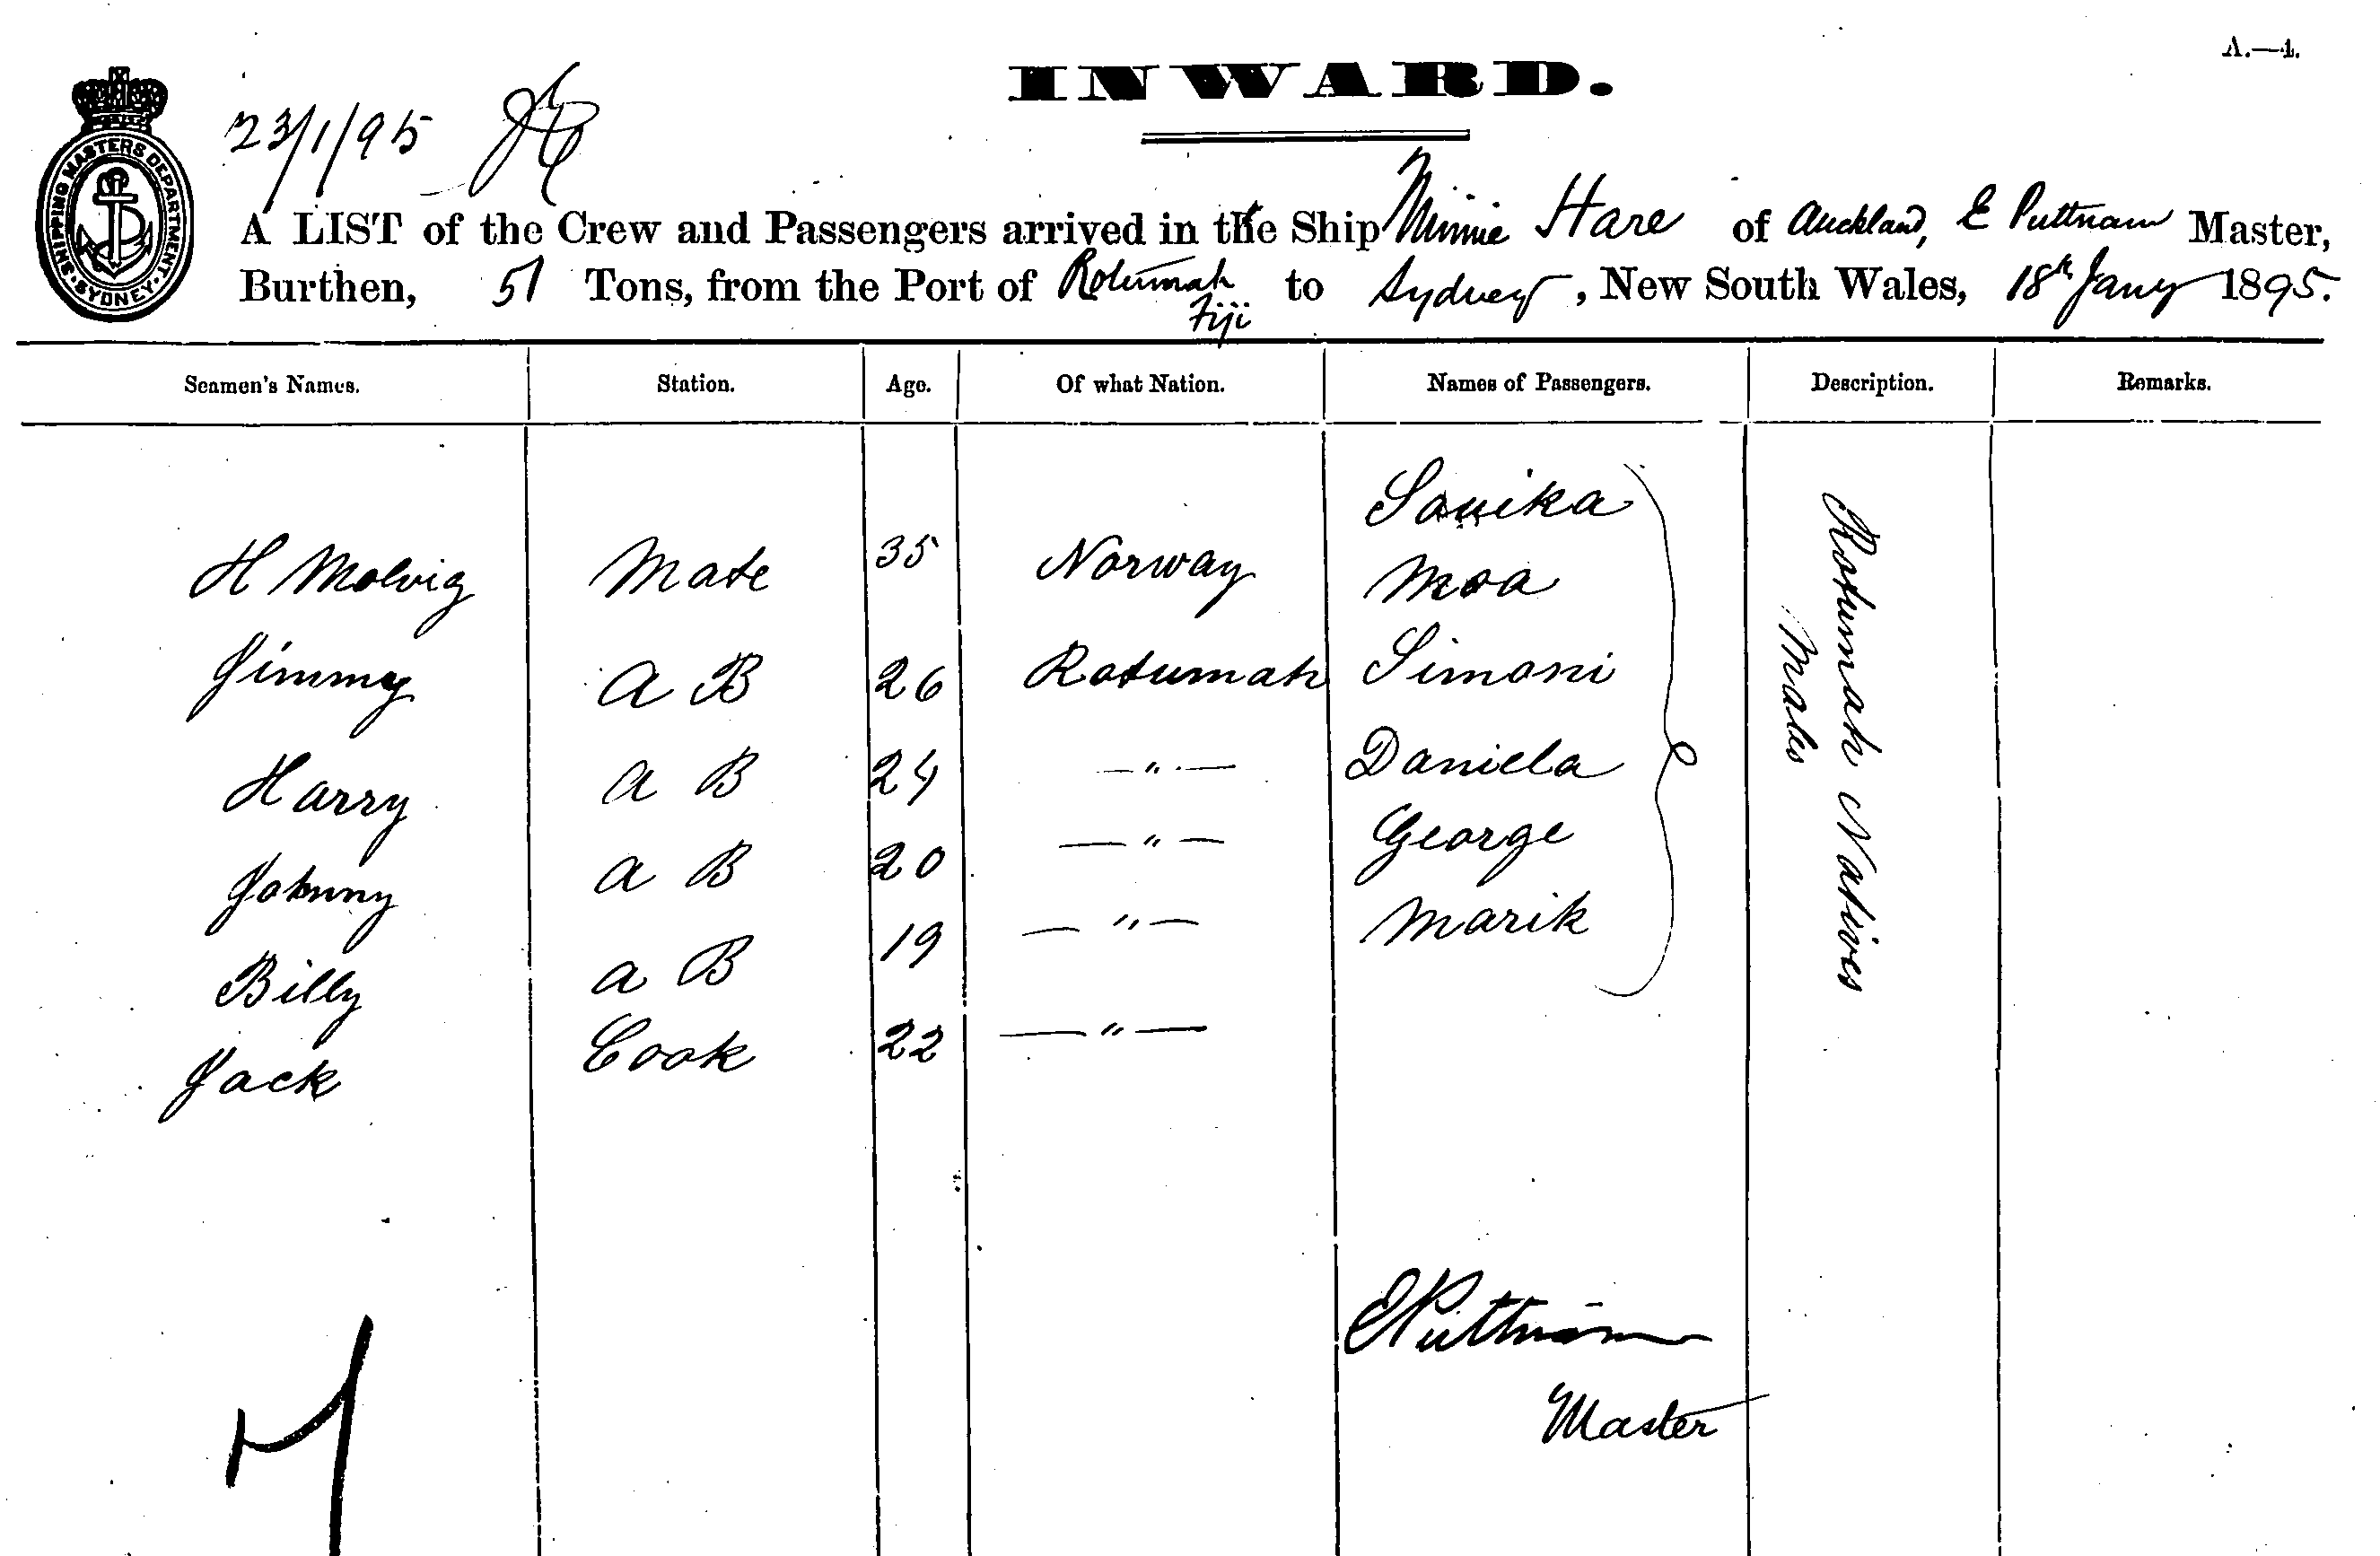 A.—4.
INWARD.
23/1/95
SHIPPING MASTERS DEPARTMENT · SYDNEY ·
A LIST of the Crew and Passengers arrived in the Ship Minnie Hare of Auckland, E Puttnam Master,
Burthen, 51 Tons, from the Port of Rotumah Fiji to Sydney, New South Wales, 18th Jany 1895.
Seamen's Names. Station. Age. Of what Nation. Names of Passengers. Description. Remarks.
Rotumah Natives
Males
H Molvig Mate 35 Norway
Moa
Jimmy A B 26 Rotumah Simoni
Harry A B 24 — " — Daniela
Johnny A B 20 — " — George
Billy A B 19 — " — Marik
Jack Cook 22 — " —
E Puttnam
Master
7